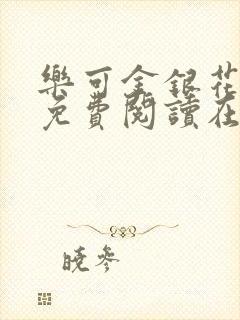 樂可金銀花
免費閱讀在
曉參